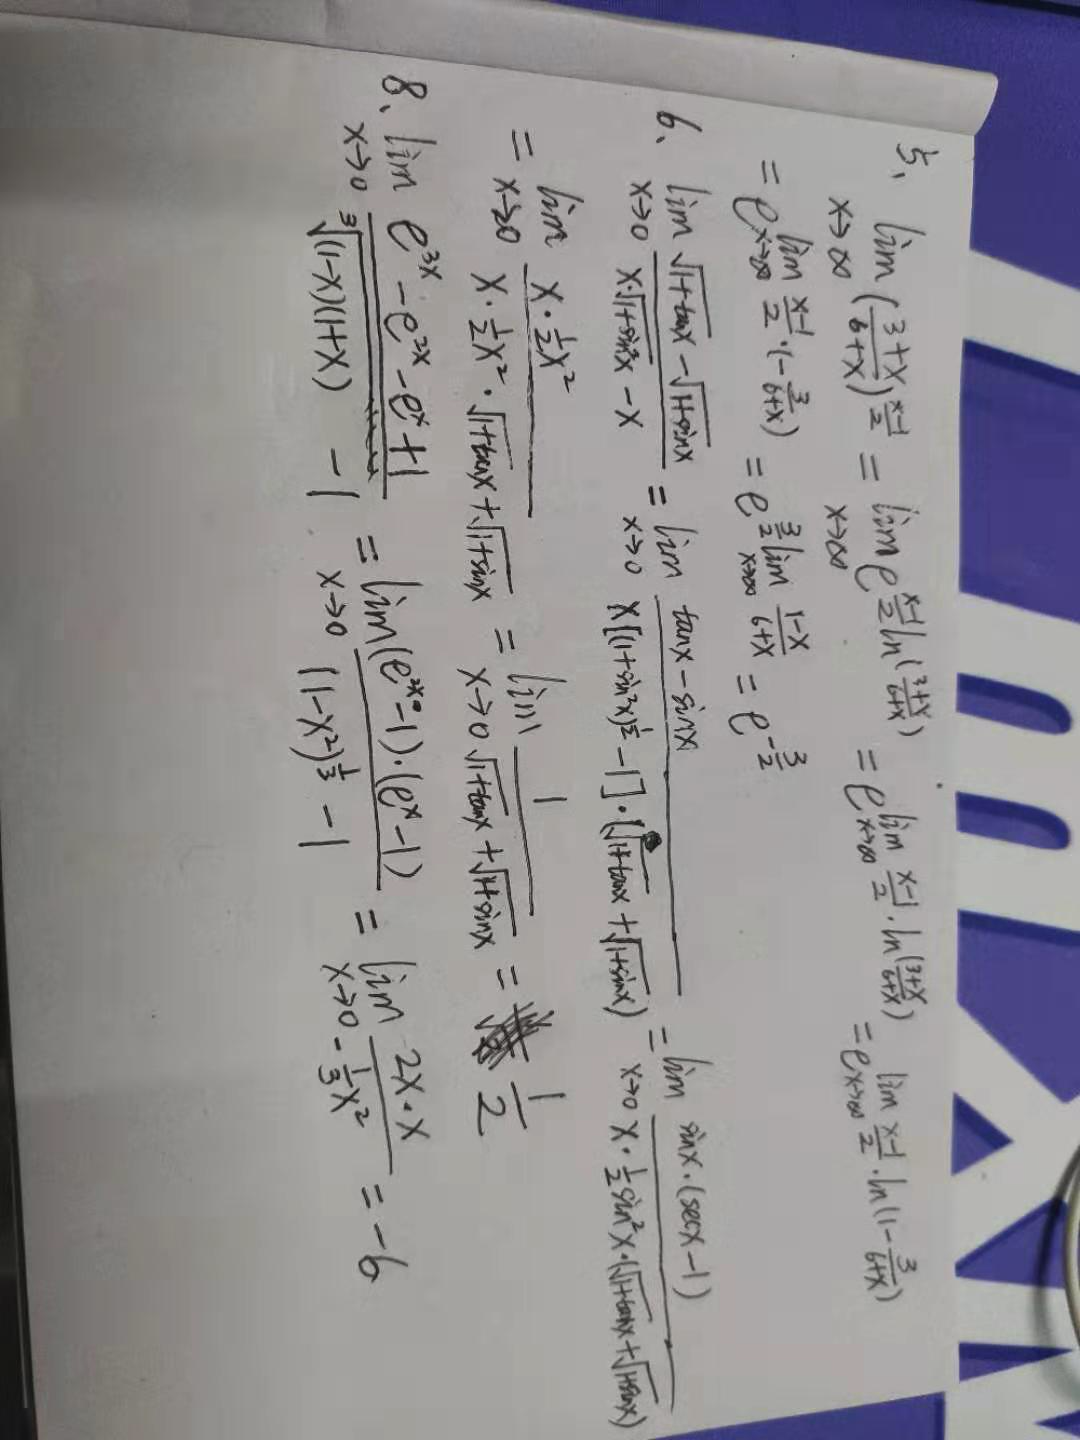 5、 lim x→∞ (3+x/6+x)^(x-1/2) = lim x→∞ e^(x-1/2 ln(3+x/6+x)) = e^(lim x→∞ x-1/2 · ln(3+x/6+x)) = e^(lim x→∞ x-1/2 · ln(1-3/6+x))
= e^(lim x→∞ x-1/2 · (-3/6+x)) = e^(3/2 lim x→∞ 1-x/6+x) = e^(-3/2)
6、 lim x→0 √1+tanx - √1+sinx / x·√1+sin²x - x = lim x→0 tanx - sinx / x[(1+sin²x)^(1/2) - 1]·(√1+tanx + √1+sinx) = lim x→0 sinx·(secx-1) / x·1/2 sin²x·(√1+tanx + √1+sinx)
= lim x→0 x·1/2x² / x·1/2x²·√1+tanx + √1+sinx = lim x→0 1 / √1+tanx + √1+sinx = 1/2
8、 lim x→0 e^(3x) - e^(2x) - e^x + 1 / ³√(1-x)(1+x) - 1 = lim x→0 (e^(2x) - 1)·(e^x - 1) / (1-x²)^(1/3) - 1 = lim x→0 2x·x / -1/3x² = -6